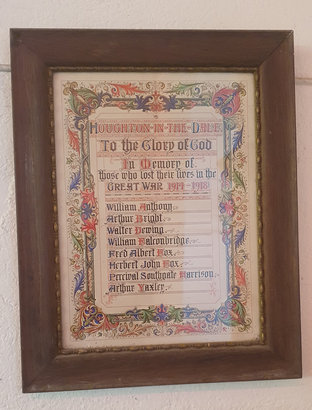 HOUGHTON-IN-THE-DALE
To the Glory of God
In Memory of
those who lost their lives in the
GREAT WAR 1914-1918
William Anthony
Arthur Bright
Walter Dewing
William Falconbridge
Fred Albert Fox
Herbert John Fox
Percival Southgate Harrison
Arthur Yaxley